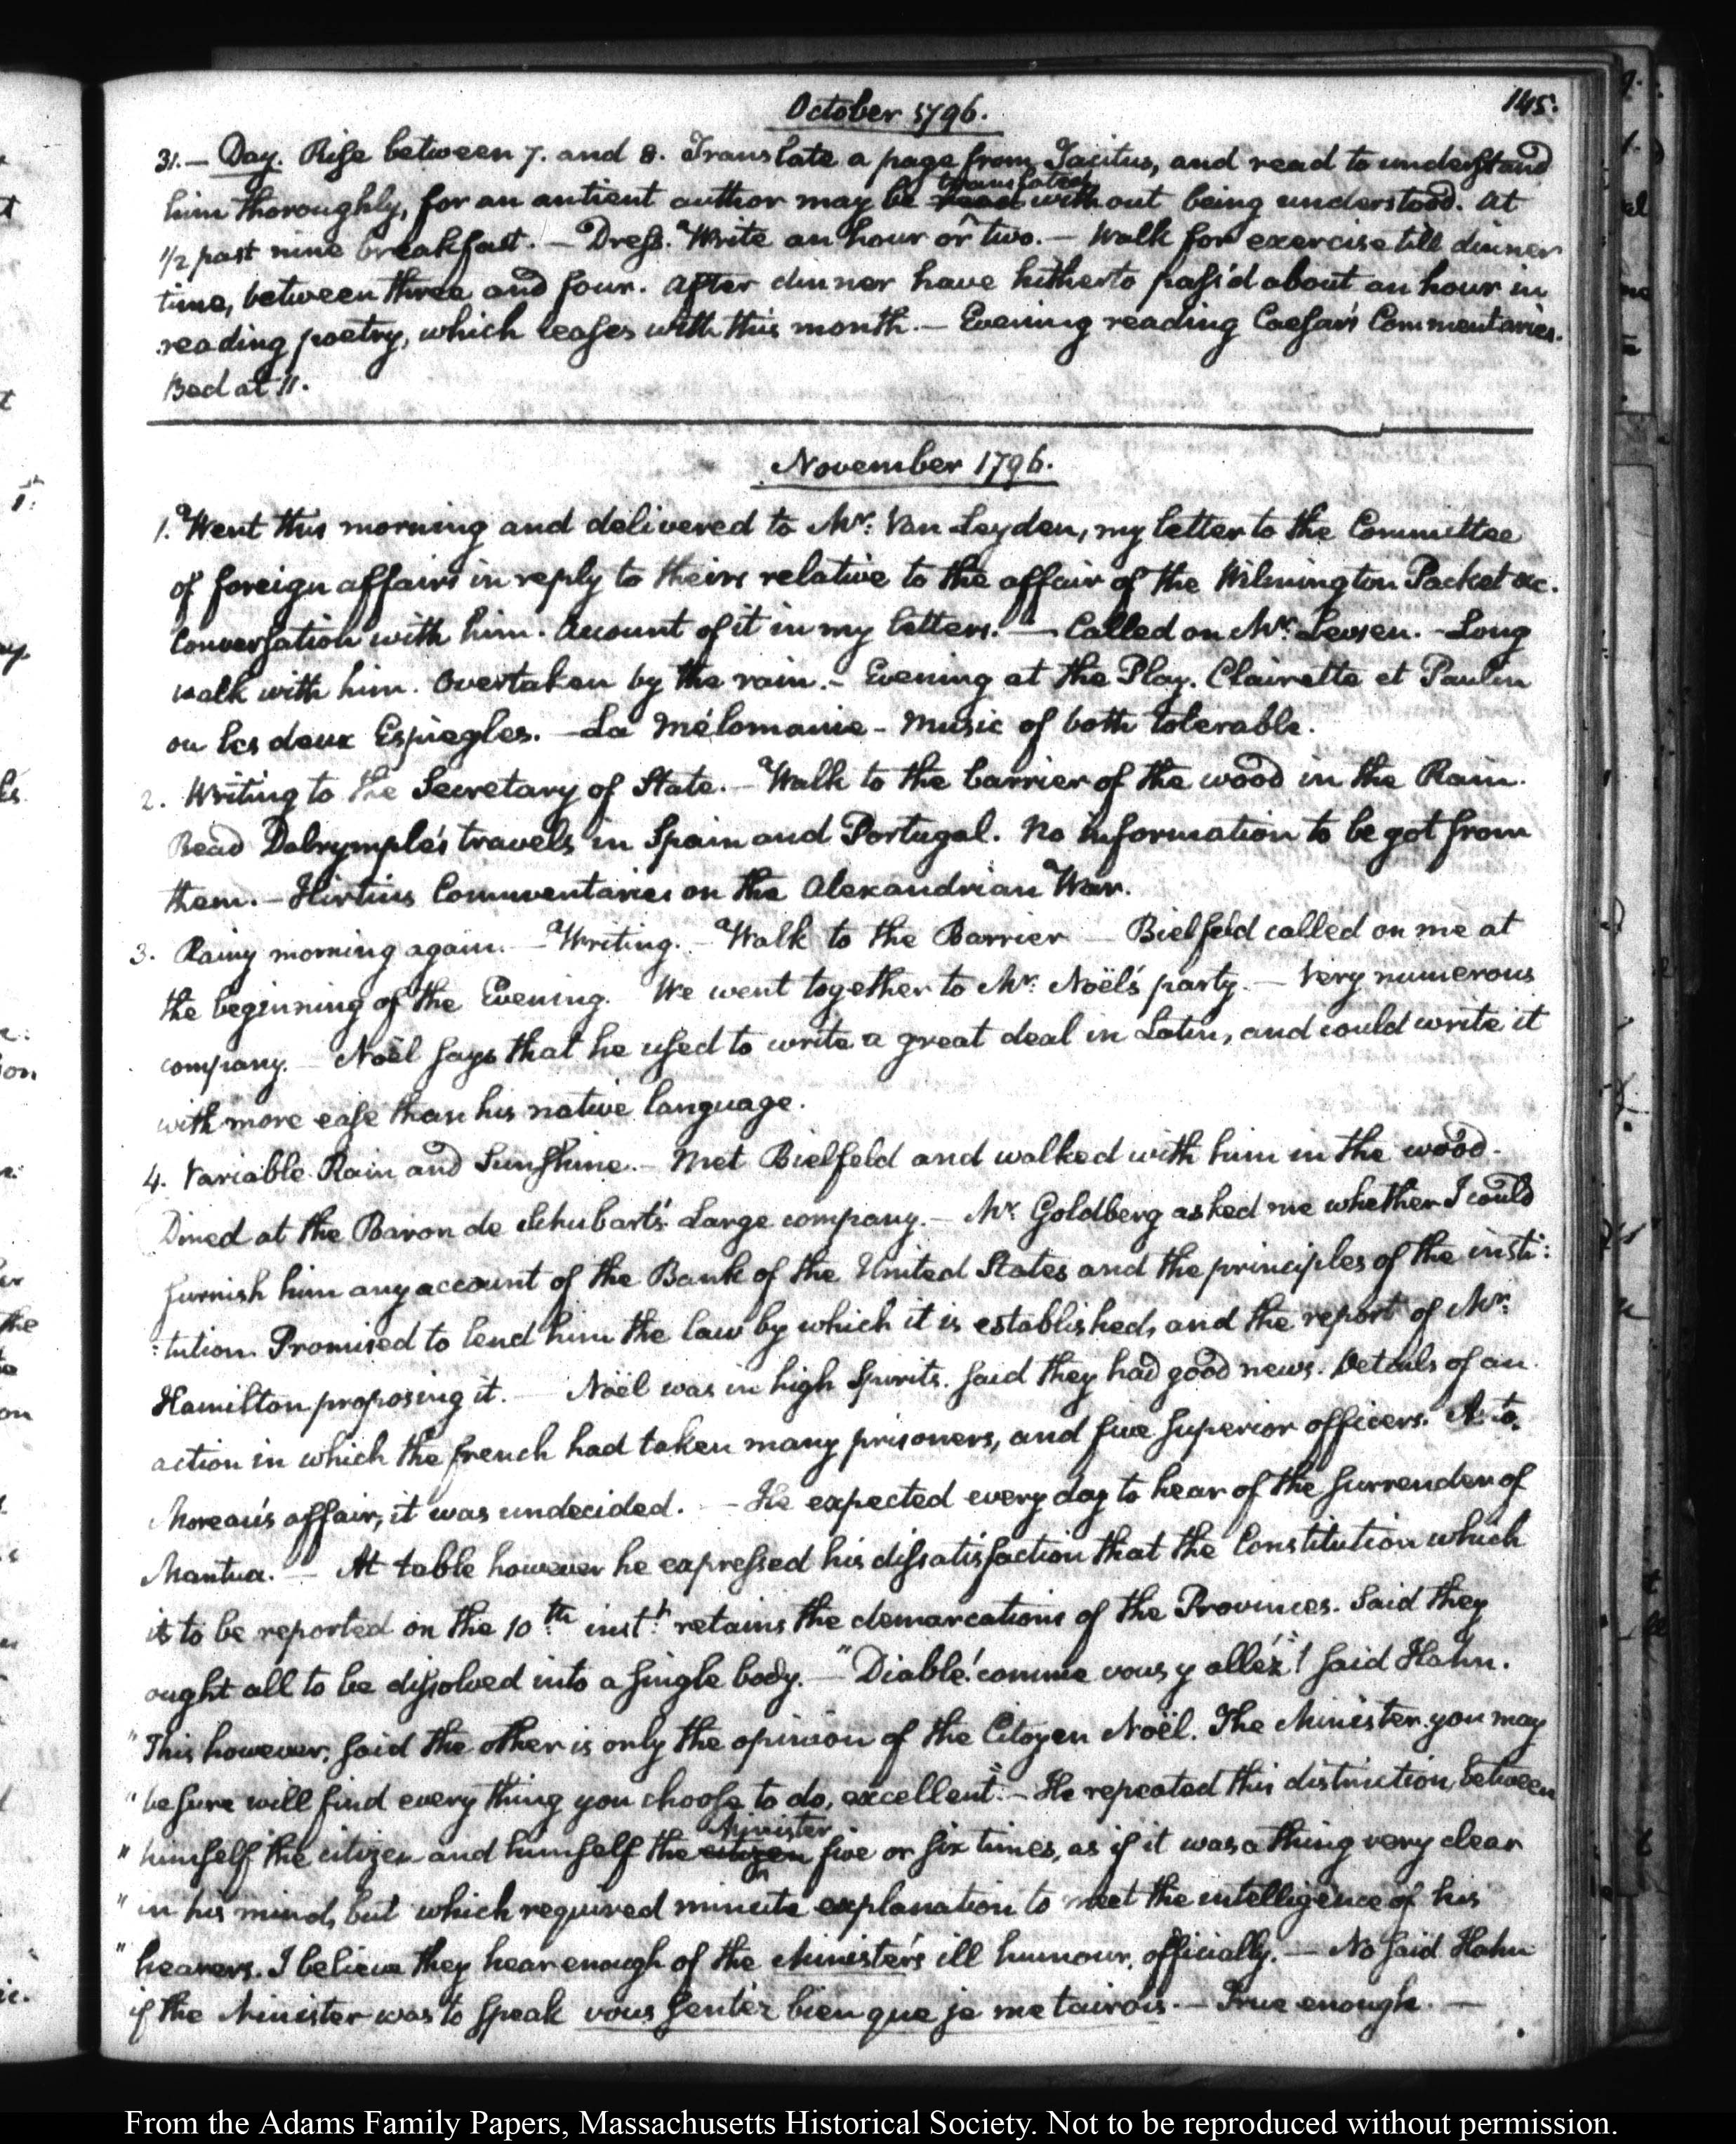 145.
October 1796.
31.— Day. Rise between 7. and 8. Translate a page from Tacitus, and read to understand
him thoroughly, for an antient author may be read translated without being understood. At
1/2 past nine breakfast.— Dress. Write an hour or two.— Walk for exercise till dinner
time, between three and four. After dinner have hitherto pass'd about an hour in
reading poetry, which ceases with this month.— Evening reading Caesar's Commentaries.
Bed at 11.
November 1796.
1. Went this morning and delivered to Mr: Van Leyden, my letter to the Committee
of foreign affairs in reply to theirs relative to the affair of the Wilmington Packet &c.
Conversation with him. Account of it in my letters.— Called on Mr: Levsen.- Long
walk with him. Overtaken by the rain.- Evening at the Play. Clairette et Paulin
ou les deux Espiegles.—La Mélomanie - Music of both tolerable.
2. Writing to the Secretary of State.— Walk to the barrier of the wood in the Rain.
Read Dalrymple's travels in Spain and Portugal. No information to be got from
them.— Hirtius Commentaries on the Alexandrian War.
3. Rainy morning again.—Writing.—Walk to the Barrier — Bielfeld called on me at
the beginning of the Evening. We went together to Mr: Noël's party.— Very numerous
company.— Noël says that he used to write a great deal in Latin, and could write it
with more ease than his native language.
4. Variable Rain and Sunshine.— Met Bielfeld and walked with him in the wood.
Dined at the Baron de Schubart's. Large company.— Mr: Goldberg asked me whether I could
furnish him any account of the Bank of the United States and the principles of the insti:
:tution. Promised to lend him the law by which it is established, and the report of Mr:
Hamilton proposing it.— Noël was in high spirits. Said they had good news. Details of an
action in which the french had taken many prisoners, and five superior officers. As to
Moreau's affair, it was undecided.— He expected every day to hear of the surrender of
Mantua.— At table however he expressed his dissatisfaction that the Constitution which
is to be reported on the 10th: instt: retains the demarcations of the Provinces. Said they
ought all to be dissolved into a single body.—"Diable! comme vous y alléz"! said Hahn.
"This however, said the other is only the opinion of the Citoyen Noël. The Minister you may
"be sure will find every thing you choose to do, excellent".— He repeated this distinction, between
"himself the citizen and himself the citizen Minister five or six times, as if it was a thing very clear
"in his mind, but which required minute explanation to meet the intelligence of his
"hearers. I believe they hear enough of the Minister's ill humour, officially.— No said Hahn
if the Minister was to speak vous sentéz bien que je me tairois.— True enough.—
From the Adams Family Papers, Massachusetts Historical Society. Not to be reproduced without permission.